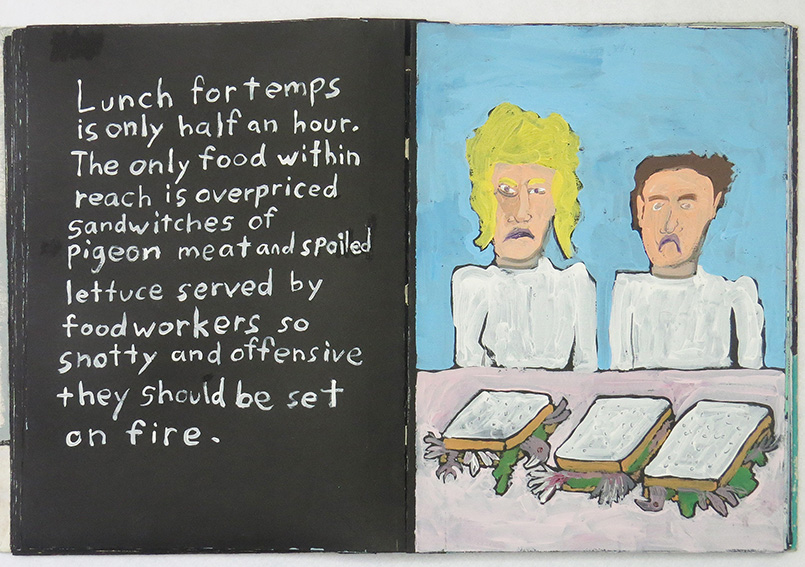 Lunch for temps
is only half an hour.
The only food within
reach is overpriced
sandwitches of
pigeon meat and spoiled
lettuce served by
foodworkers so
snotty and offensive
they should be set
on fire.